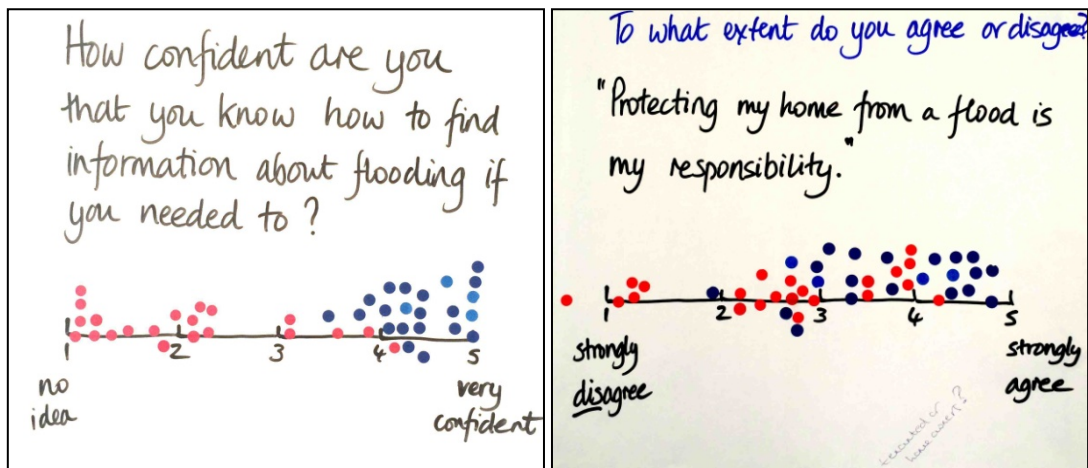 How confident are you
that you know how to find
information about flooding if
you needed to?
1 2 3 4 5
no
idea
very
confident
To what extent do you agree or disagree?
"Protecting my home from a flood is
my responsibility."
1 2 3 4 5
strongly
disagree
strongly
agree
tenanted or
home owner?